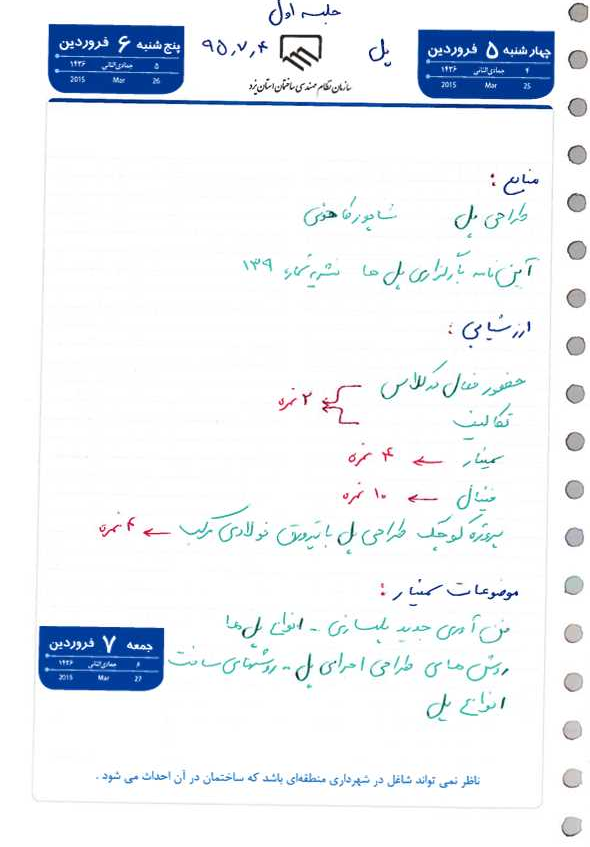 جلسه اول
چهارشنبه ۵ فروردین
۱۴۳۶ جمادی الثانی ۴
2015 Mar 25
پل
سازمان نظام مهندسی ساختمان استان یزد
۹۵,۷,۴
پنج شنبه ۶ فروردین
۱۴۳۶ جمادی الثانی ۵
2015 Mar 26
منابع :
طراحی پل شاپور طاحونی
آیین نامه بارگذاری پل ها نشریه شماره ۱۳۹
ارزشیابی :
حضور فعال در کلاس
تکالیف
۲ نمره
سمینار ← ۴ نمره
فینال ← ۱۰ نمره
پروژه کوچک طراحی پل با تیرورق فولادی مرکب ← ۴ نمره
موضوعات سمینار :
فن آوری جدید پلسازی - انواع پل ها
روش های طراحی اجزای پل - روشهای ساخت
انواع پل
جمعه ۷ فروردین
۱۴۳۶ جمادی الثانی ۶
2015 Mar 27
ناظر نمی تواند شاغل در شهرداری منطقه‌ای باشد که ساختمان در آن احداث می شود .